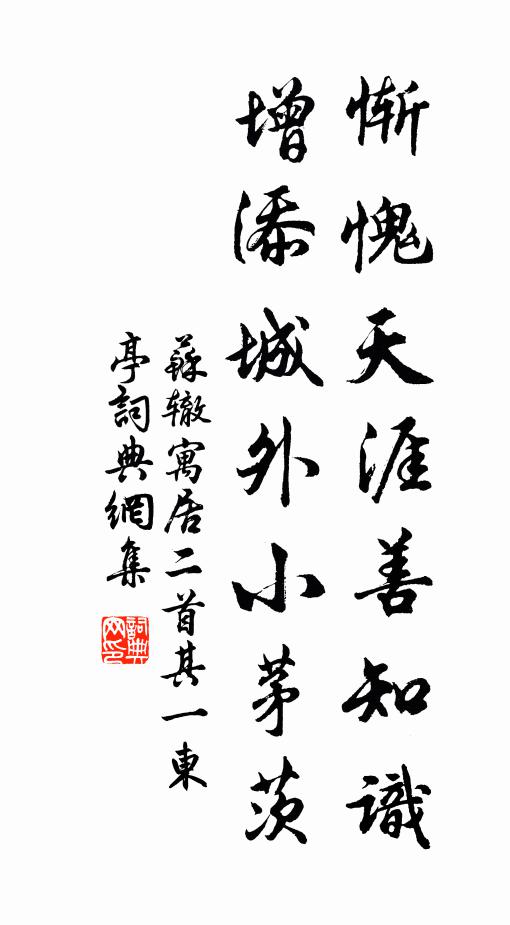 慚愧天涯善知識
增添城外小茅茨
蘇轍寓居二首其一東
亭詞典網集
詞典网印